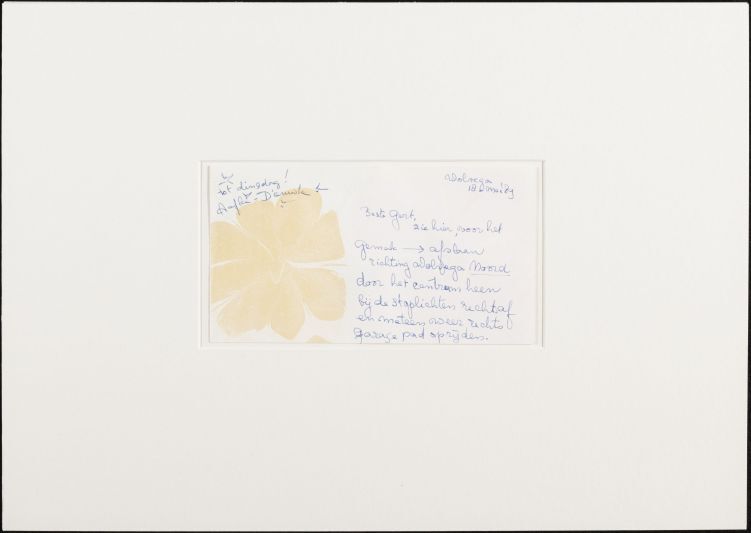 Wolvega
18 mei '89
tot dinsdag!
Beste Gert,
zie hier, voor het
gemak → afslaan
richting Wolvega Noord
door het centrum heen
bij de stoplichten rechtsaf
en meteen weer rechts
garage pad oprijden.